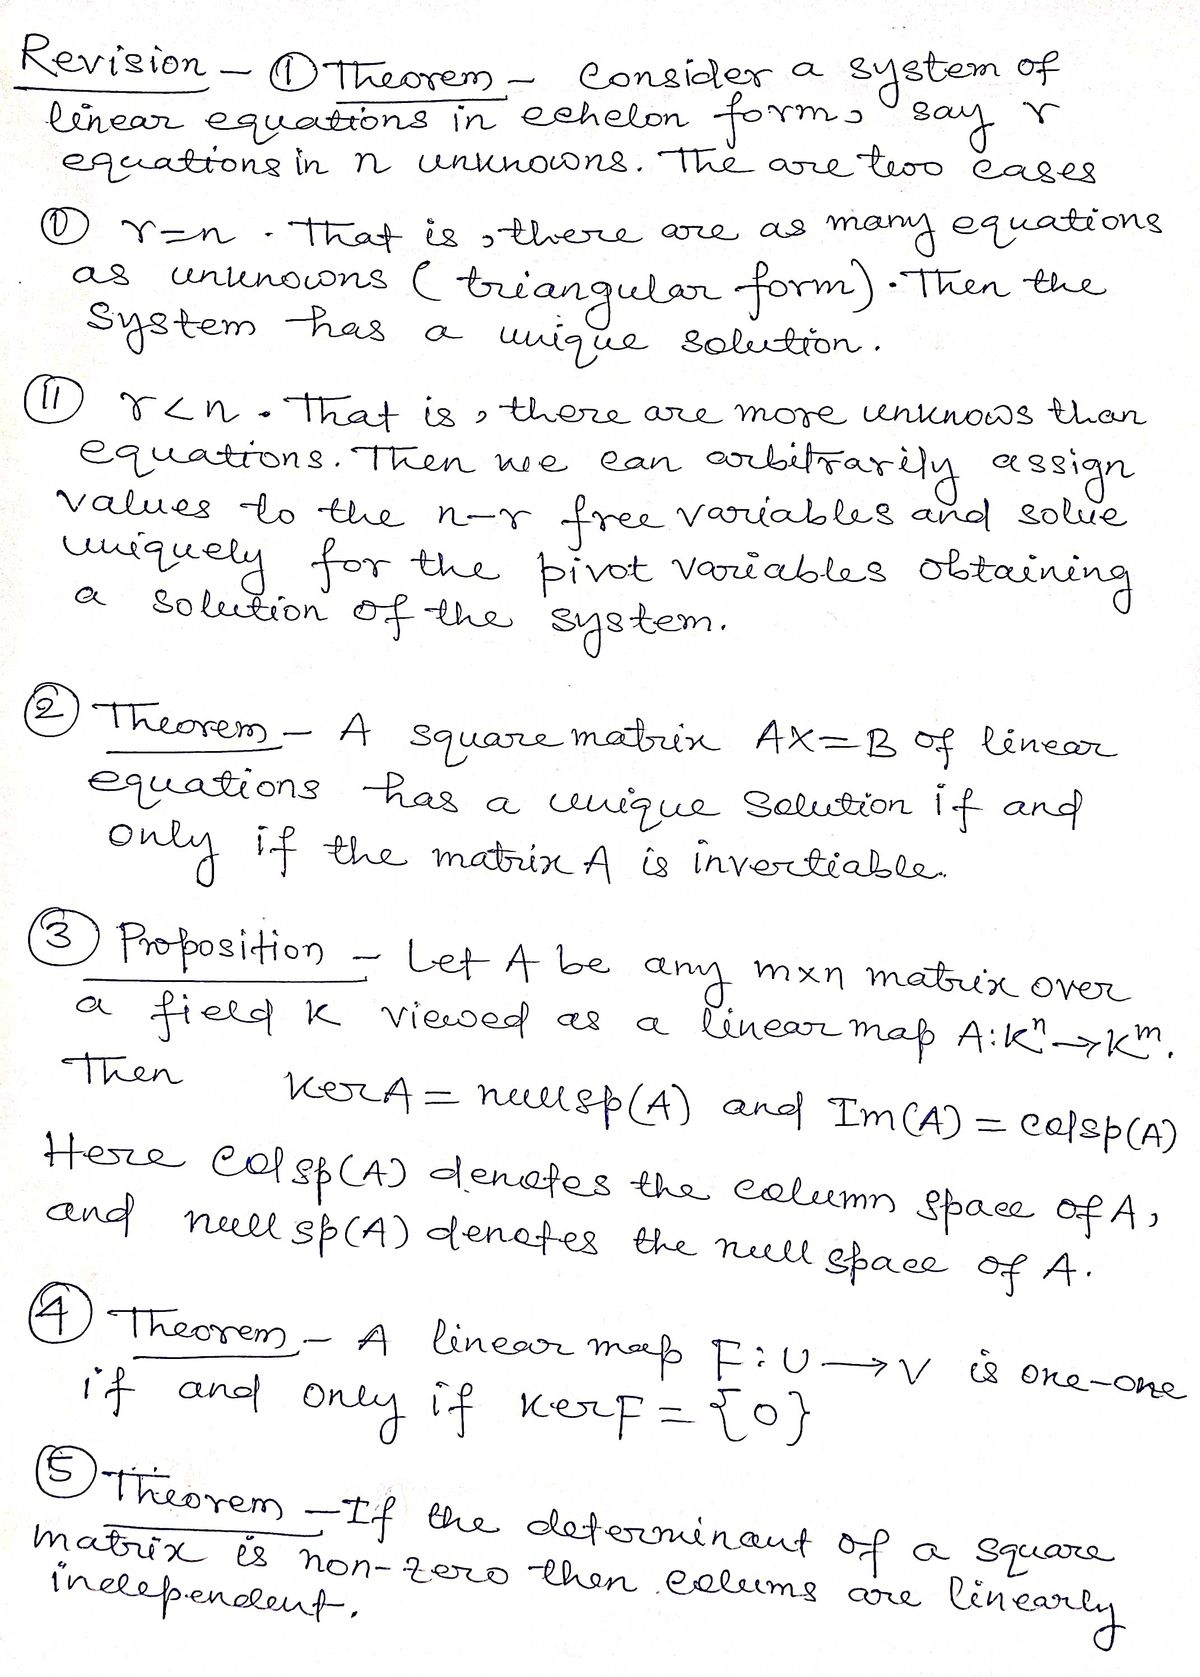 Revision - ① Theorem - Consider a system of
linear equations in echelon form, say r
equations in n unknowns. The are two cases
Ⓘ r=n. That is, there are as many equations
as unknowns (triangular form). Then the
System has a unique solution.
Ⓘⓘ r<n. That is, there are more unknows than
equations. Then we can arbitrarily assign
values to the n-r free variables and solve
uniquely for the pivot variables obtaining
a solution of the system.
② Theorem - A square matrix AX=B of linear
equations has a unique Solution if and
only if the matrix A is invertiable.
③ Proposition - Let A be any m×n matrix over
a field K viewed as a linear map A:Kⁿ→Kᵐ.
Then KerA = nullsp(A) and Im(A) = colsp(A)
Here colsp(A) denotes the column space of A,
and nullsp(A) denotes the null space of A.
④ Theorem - A linear map F:U→V is one-one
if and only if KerF = {0}
⑤ Theorem - If the determinant of a square
matrix is non-zero then colums are linearly
independent.